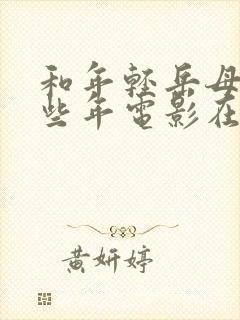 和年轻岳母
些年电影在
黄妍婷